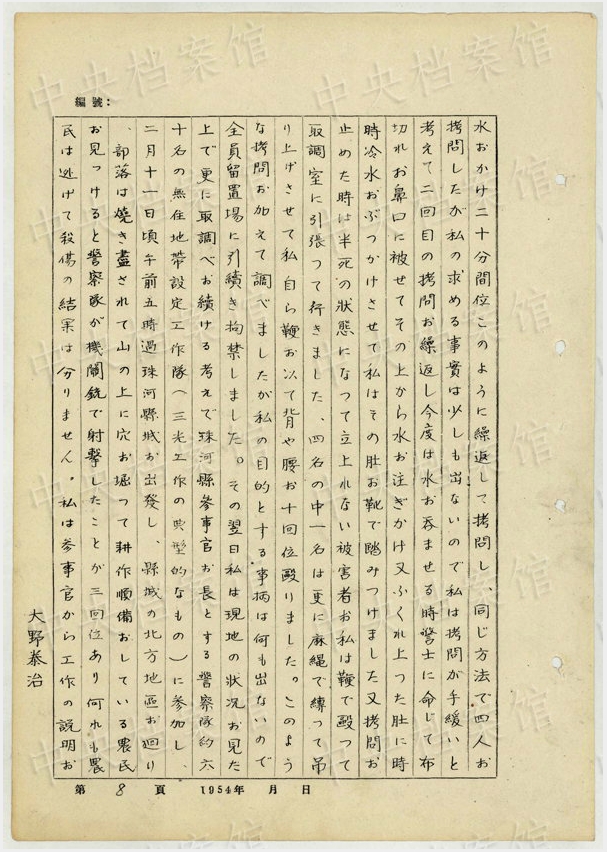 編號：
水おかけ二十分間位このように繰返して拷問し、同じ方法で四人お
拷問したが私の求める事實は少しも出ないので私は拷問が手緩いと
考えて二回目の拷問お繰返し今度は水お呑ませる時警士に命じて布
切れお鼻口に被せてその上から水お注ぎかけ又ふくれ上つた肚に時
時冷水おぶつかけさせて私はその肚お靴で踏みつけました又拷問お
止めた時は半死の狀態になつて立上れない被害者お私は鞭で毆つて
取調室に引張つて行きました、四名の中一名は更に麻縄で縛つて吊
り上げさせて私自ら鞭お以て背や腰お十回位毆りました。このよう
な拷問お加えて調べましたが私の目的とする事柄は何も出ないので
全員留置場に引續き拘禁しました。その翌日私は現地の狀況お見た
上で更に取調べお續ける考えで珠河縣參事官お長とする警察隊約六
十名の無住地帶設定工作隊（三光工作の典型的なもの）に参加し、
二月十一日頃午前五時過珠河縣城お出發し、縣城の北方地區お廻り
、部落は燒き盡されて山の上に穴お掘つて耕作順備おしている農民
お見つけると警察隊が機關銃で射擊したことが三回位あり何れも農
民は逃げて殺傷の結果は分りません。私は参事官から工作の説明お
大野泰治
第 8 頁 1954年 月 日
中央档案馆